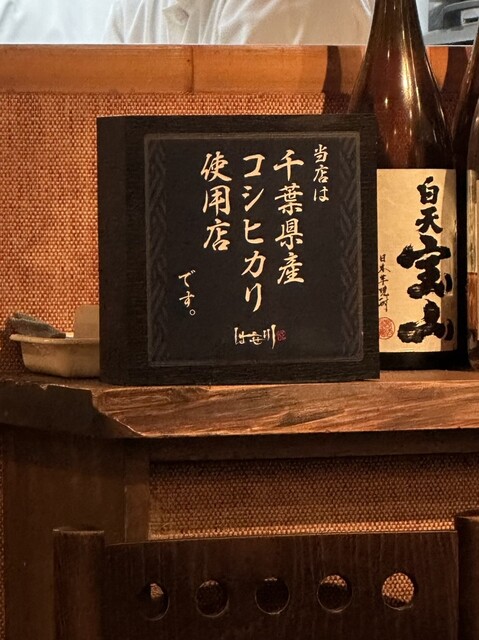 当店は
千葉県産
コシヒカリ
使用店
です。
はせ川
白天
宝山